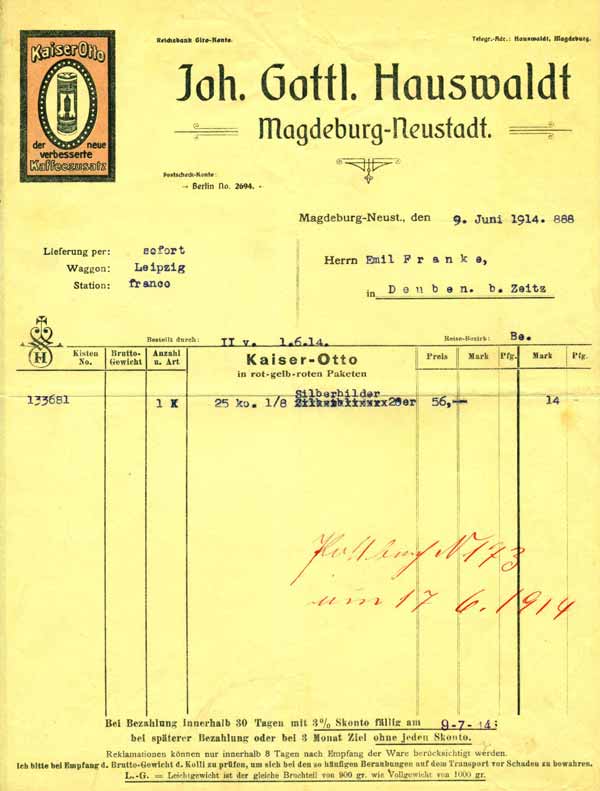 Kaiser Otto
der neue
verbesserte
Kaffeezusatz
Reichsbank Giro-Konto.
Telegr.-Adr.: Hauswaldt, Magdeburg.
Joh. Gottl. Hauswaldt
Magdeburg-Neustadt.
Postscheck-Konto:
Berlin No. 2694.
Magdeburg-Neust., den 9. Juni 1914. 888
Lieferung per: sofort
Waggon: Leipzig
Station: franco
Herrn Emil Franke,
in Deuben. b. Zeitz
H
Bestellt durch: II v. 1.6.14.
Reise-Bezirk: Be.
Kisten No. Brutto-Gewicht Anzahl u. Art Kaiser-Otto in rot-gelb-roten Paketen Preis Mark Pfg. Mark Pfg.
Silberbilder
133681 1 K 25 ko. 1/8 25er 56,— 14 -
N 173
17 6. 1914
Bei Bezahlung innerhalb 30 Tagen mit 3% Skonto fällig am 9-7-14;
bei späterer Bezahlung oder bei 3 Monat Ziel ohne jeden Skonto.
Reklamationen können nur innerhalb 8 Tagen nach Empfang der Ware berücksichtigt werden.
Ich bitte bei Empfang d. Brutto-Gewicht d. Kolli zu prüfen, um sich bei den so häufigen Beraubungen auf dem Transport vor Schaden zu bewahren.
L.-G. = Leichtgewicht ist der gleiche Bruchteil von 900 gr. wie Vollgewicht von 1000 gr.